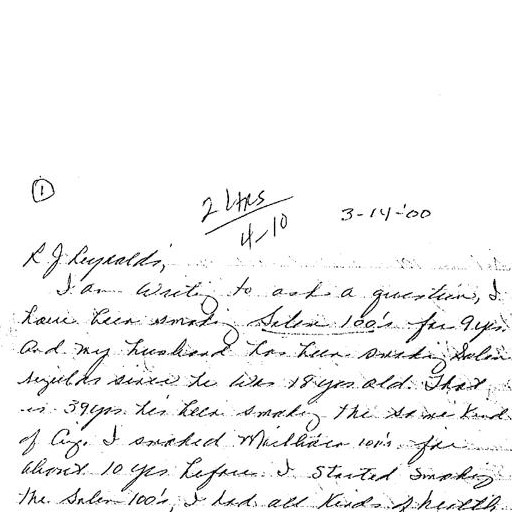 1
2 LTRS
4-10
3-14-'00
R J Reynolds,
I am writing to ask a question, I
have been smoking Salem 100's for 9 yrs
and my husband has been smoking Salem
regulars since he was 18 yrs old. That
is 39 yrs he's been smoking the same kind
of Cig. I smoked 100's for
about 10 yrs before I started smoking
the Salem 100's, I had all kinds of health